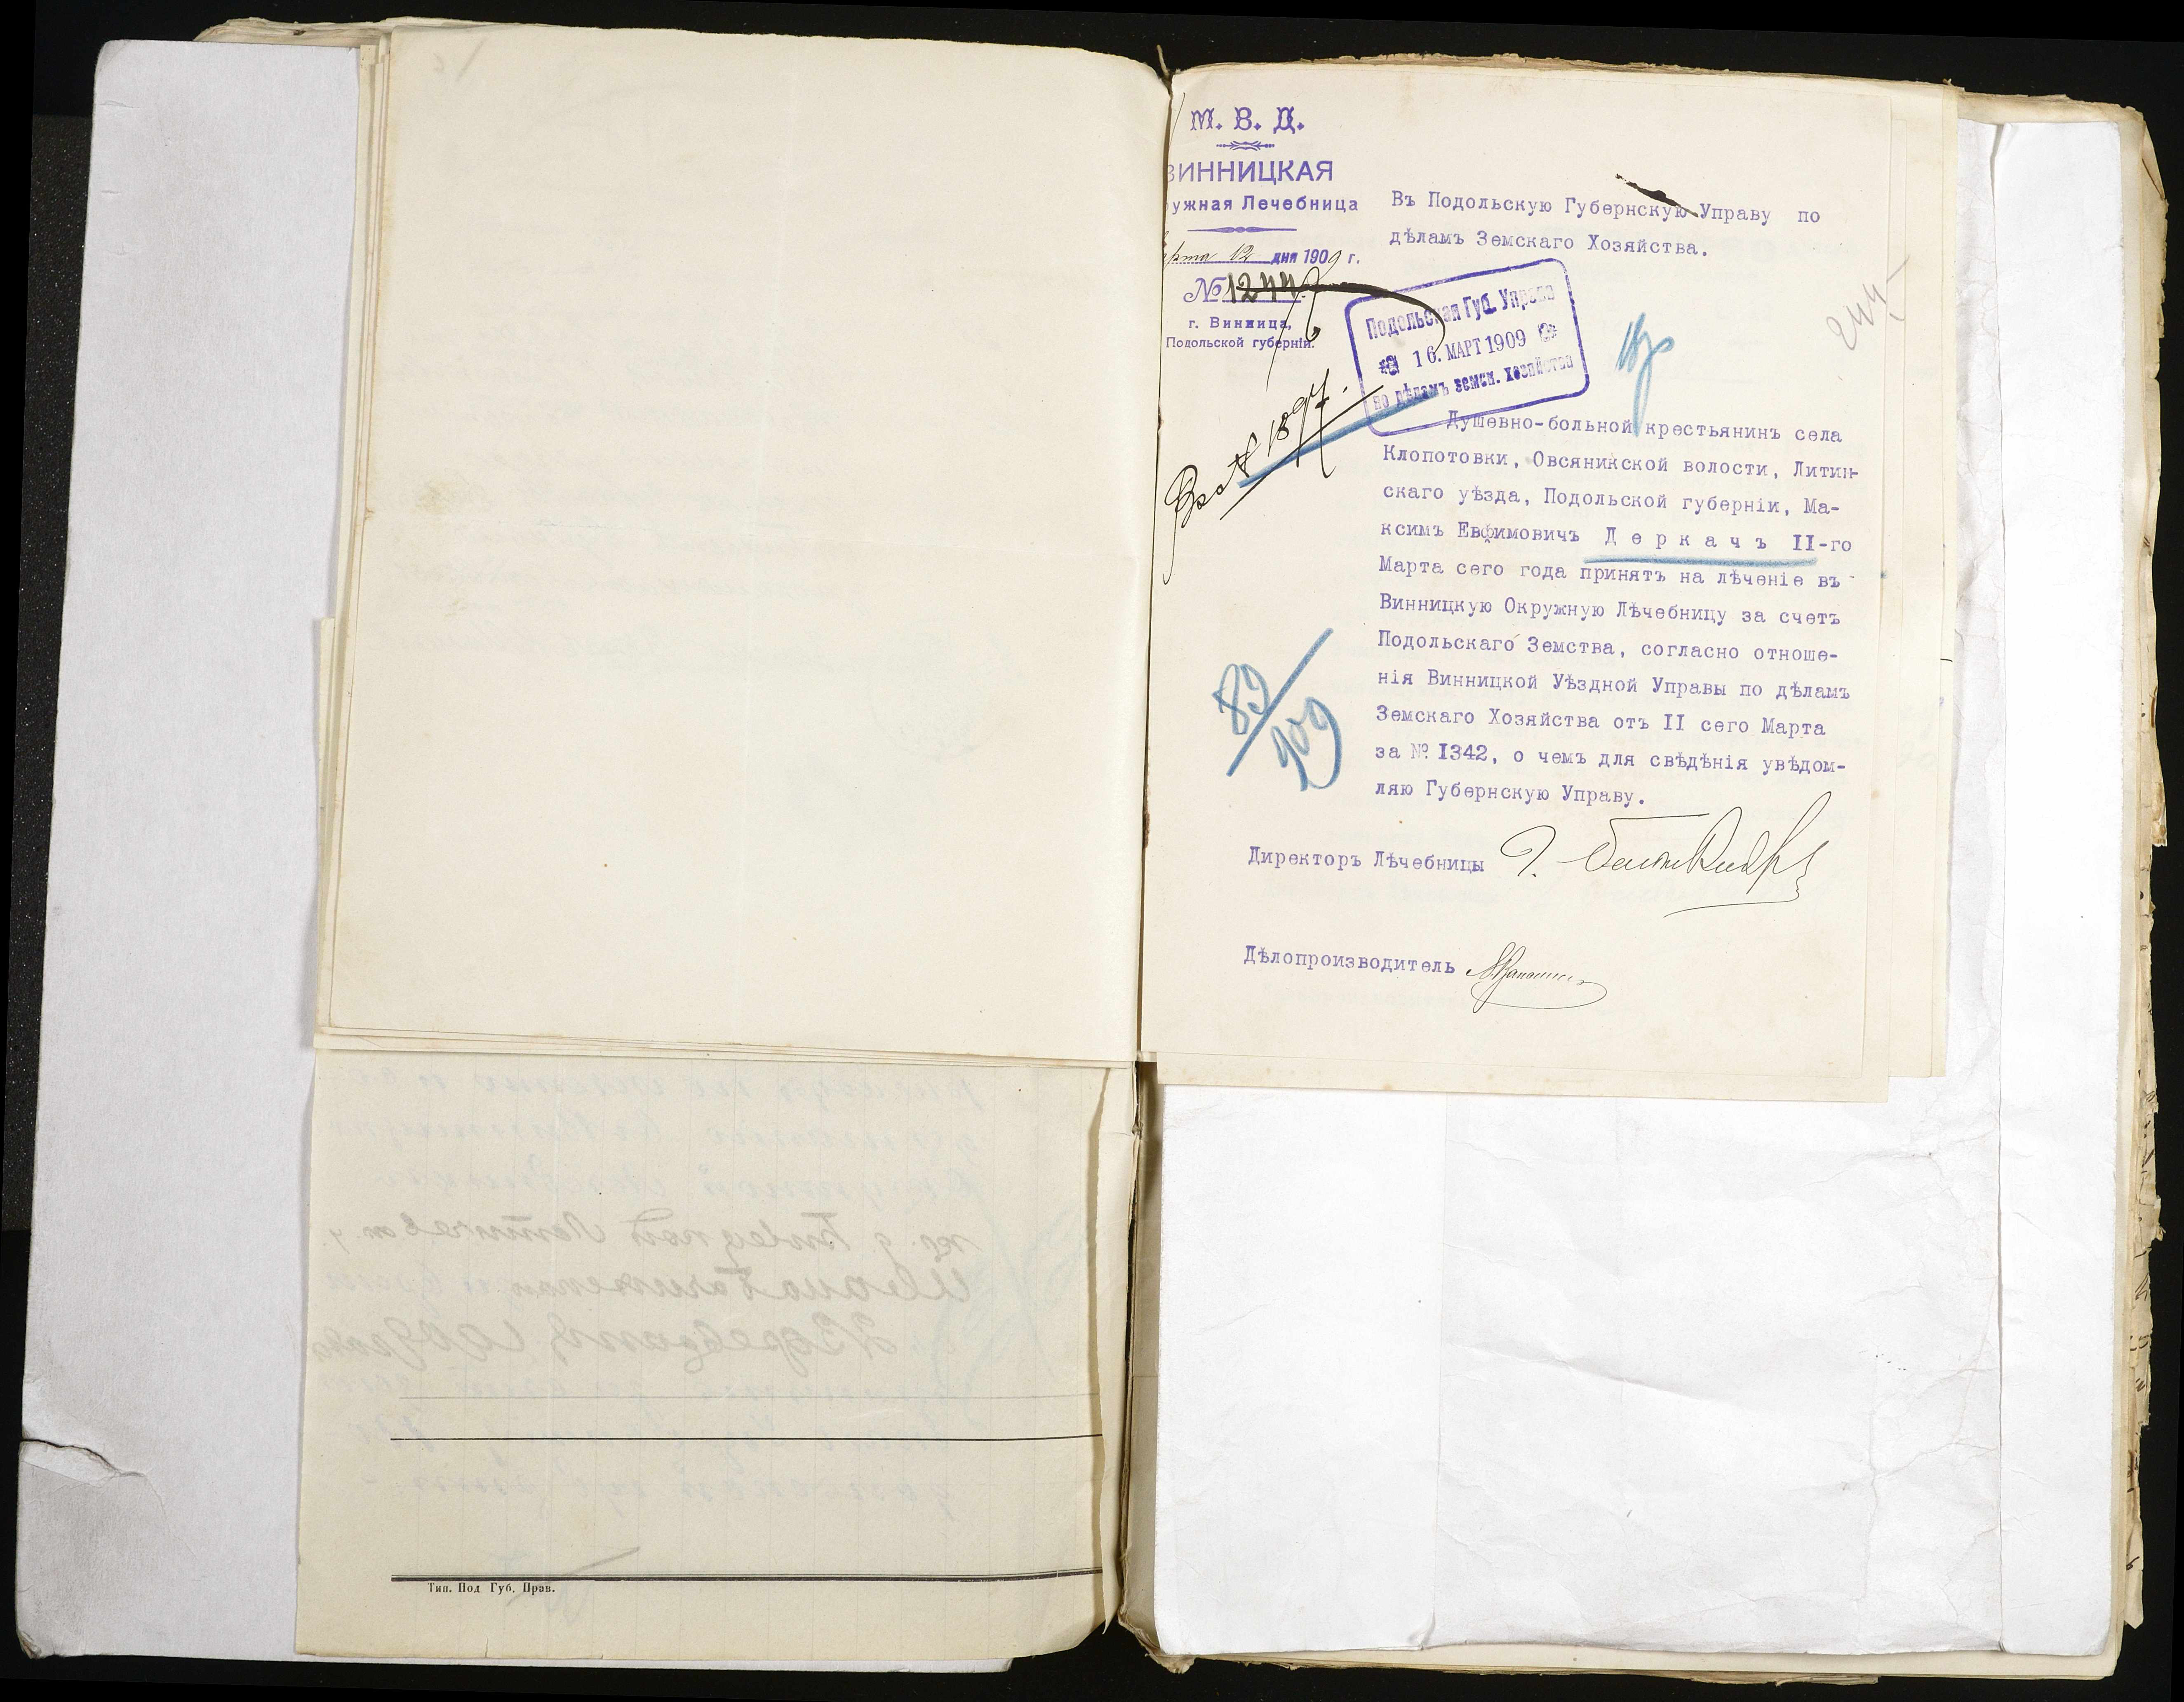 М. В. Д.
ВИННИЦКАЯ
ужная Лечебница
арта 12 дня 1909 г.
№ 1244
г. Винница,
Подольской губерніи.
Въ Подольскую Губернскую Управу по
дѣламъ Земскаго Хозяйства.
Подольская Губ. Управа
16. МАРТ 1909
по дѣламъ земск. хозяйства
245
Вх № 1894.
Душевно-больной крестьянинъ села
Клопотовки, Овсяникской волости, Литин-
скаго уѣзда, Подольской губерніи, Ма-
ксимъ Евфимовичъ Деркачъ II-го
Марта сего года принятъ на лѣченіе въ
Винницкую Окружную Лѣчебницу за счетъ
Подольскаго Земства, согласно отноше-
нія Винницкой Уѣздной Управы по дѣламъ
Земскаго Хозяйства отъ II сего Марта
за № I342, о чемъ для свѣдѣнія увѣдом-
ляю Губернскую Управу.
89/909
Директоръ Лѣчебницы
Дѣлопроизводитель
Тип. Под Губ. Прав.